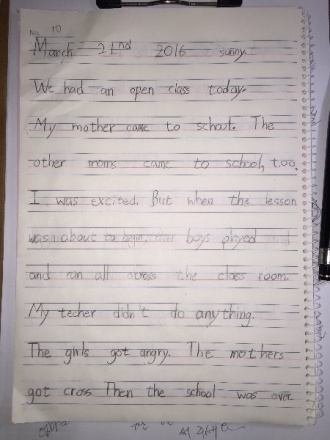 No. 10
March 21nd 2016 sunny.
We had an open class today.
My mother came to school. The
other moms came to school, too.
I was excited. But when the lesson
was about to begin, boys played
and ran all across the class room.
My techer didn't do anything.
The girls got angry. The mothers
got cross Then the school was over.